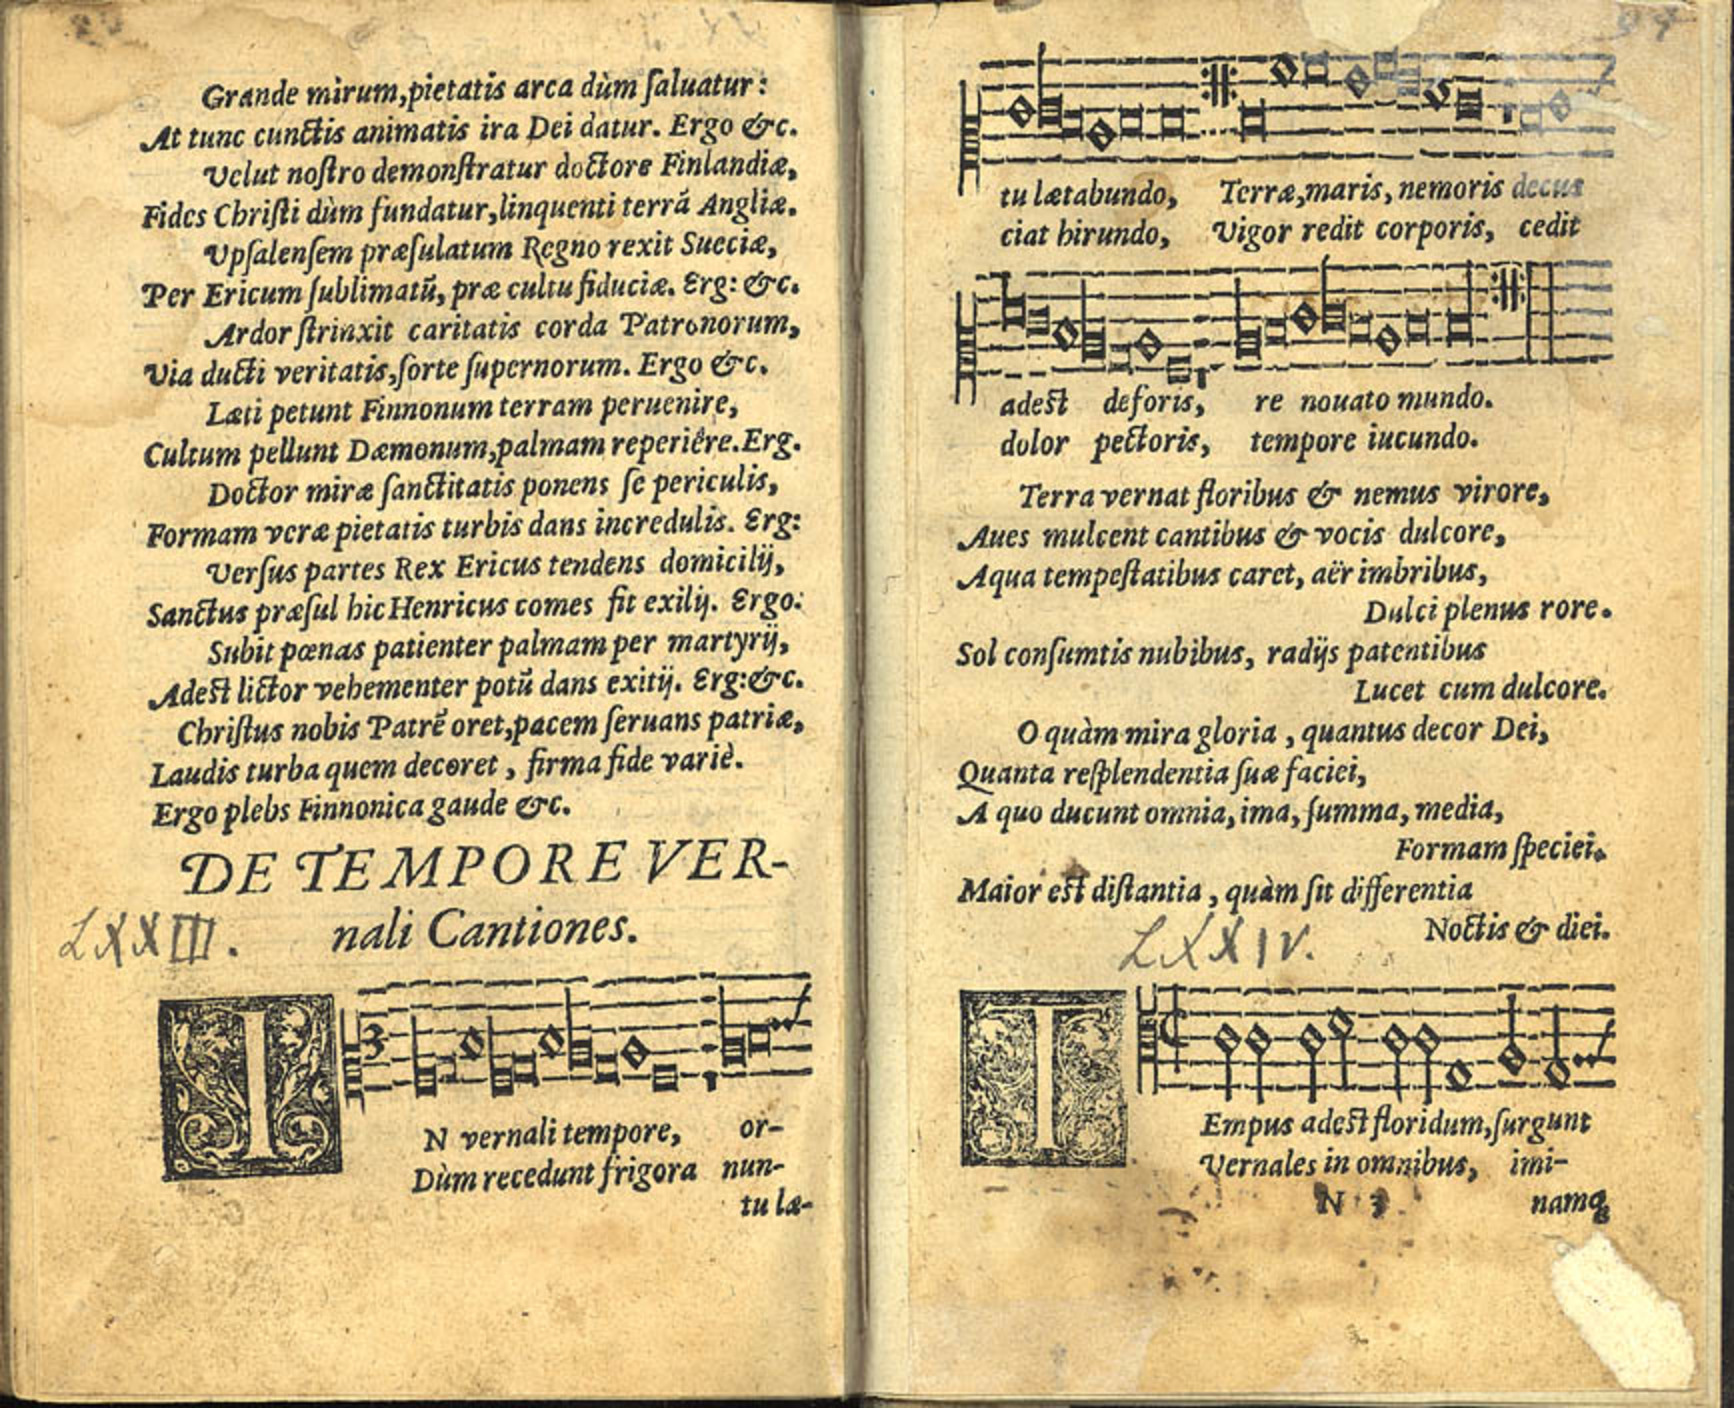 Grande mirum,pietatis arca dùm ſaluatur:
At tunc cunctis animatis ira Dei datur. Ergo &c.
Velut noſtro demonſtratur doctore Finlandiæ,
Fides Chriſti dùm fundatur,linquenti terrã Angliæ.
Vpſalenſem præſulatum Regno rexit Sueciæ,
Per Ericum ſublimatũ, præ cultu fiduciæ. Erg: &c.
Ardor ſtrinxit caritatis corda Patronorum,
Via ducti veritatis,ſorte ſupernorum. Ergo &c.
Læti petunt Finnonum terram peruenire,
Cultum pellunt Dæmonum,palmam reperiêre.Erg.
Doctor miræ ſanctitatis ponens ſe periculis,
Formam veræ pietatis turbis dans incredulis. Erg:
Verſus partes Rex Ericus tendens domicilij,
Sanctus præſul hic Henricus comes fit exilij. Ergo:
Subit pœnas patienter palmam per martyrij,
Adest lictor vehementer potũ dans exitij. Erg:&c.
Chriſtus nobis Patrẽ oret,pacem ſeruans patriæ,
Laudis turba quem decoret, firma fide variè.
Ergo plebs Finnonica gaude &c.
DE TEMPORE VER-
nali Cantiones.
LXXIII.
3
IN vernali tempore, or-
Dùm recedunt frigora nun-
tu læ-
94
tu lætabundo, Terræ,maris, nemoris decus
ciat hirundo, Vigor redit corporis, cedit
adest deforis, re nouato mundo.
dolor pectoris, tempore iucundo.
Terra vernat floribus & nemus virore,
Aues mulcent cantibus & vocis dulcore,
Aqua tempeſtatibus caret, aër imbribus,
Dulci plenus rore.
Sol conſumtis nubibus, radijs patentibus
Lucet cum dulcore.
O quàm mira gloria, quantus decor Dei,
Quanta reſplendentia ſuæ faciei,
A quo ducunt omnia, ima, ſumma, media,
Formam ſpeciei.
Maior est diſtantia, quàm ſit differentia
Noctis & diei.
LXXIV.
TEmpus adest floridum,ſurgunt
Vernales in omnibus, imi-
N 3
namq